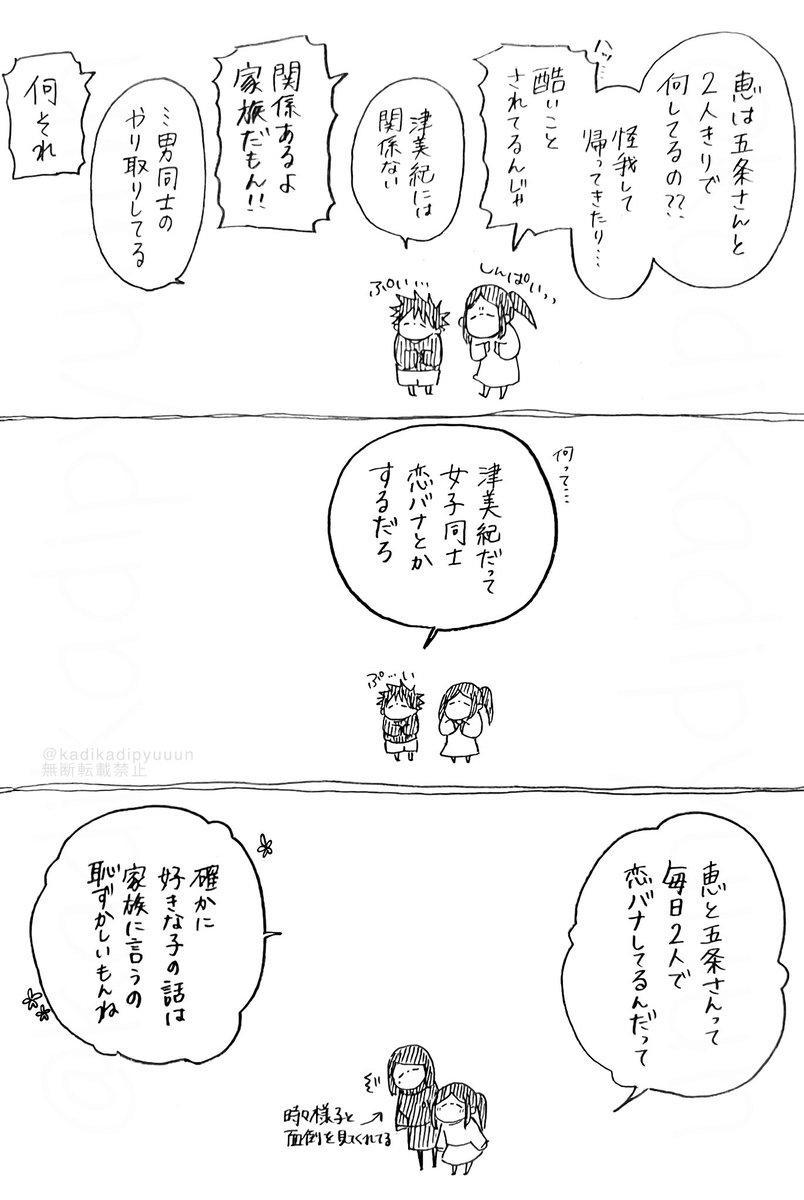 恵は五条さんと
2人きりで
何してるの??
怪我して
帰ってきたり…
ハッ…
酷いこと
されてるんじゃ
しんぱいっっ
津美紀には
関係ない
ぷい…
関係あるよ
家族だもん!!
…男同士の
やり取りしてる
何それ
何って…
津美紀だって
女子同士
恋バナとか
するだろ
ぷ…い
@kadikadipyuuun
無断転載禁止
恵と五条さんって
毎日2人で
恋バナしてるんだって
確かに
好きな子の話は
家族に言うの
恥ずかしいもんね
時々様子と
面倒を見てくれてる